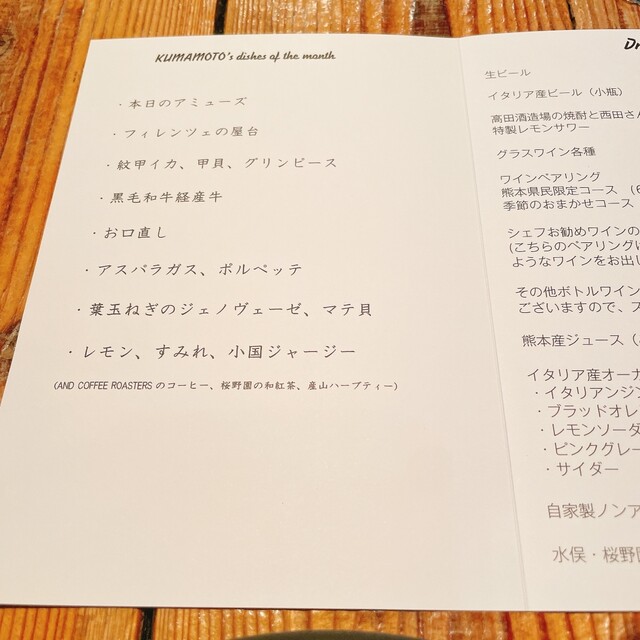 KUMAMOTO's dishes of the month
・本日のアミューズ
・フィレンツェの屋台
・紋甲イカ、甲貝、グリンピース
・黒毛和牛経産牛
・お口直し
・アスパラガス、ポルペッテ
・葉玉ねぎのジェノヴェーゼ、マテ貝
・レモン、すみれ、小国ジャージー
(AND COFFEE ROASTERSのコーヒー、桜野園の和紅茶、産山ハーブティー)
生ビール
イタリア産ビール（小瓶）
高田酒造場の焼酎と西田さん
特製レモンサワー
グラスワイン各種
ワインペアリング
熊本県民限定コース （6
季節のおまかせコース
シェフお勧めワインの
(こちらのペアリングは
ようなワインをお出し
その他ボトルワイン
ございますので、ス
熊本産ジュース（
イタリア産オーガ
・イタリアンジン
・ブラッドオレ
・レモンソーダ
・ピンクグレー
・サイダー
自家製ノンア
水俣・桜野園